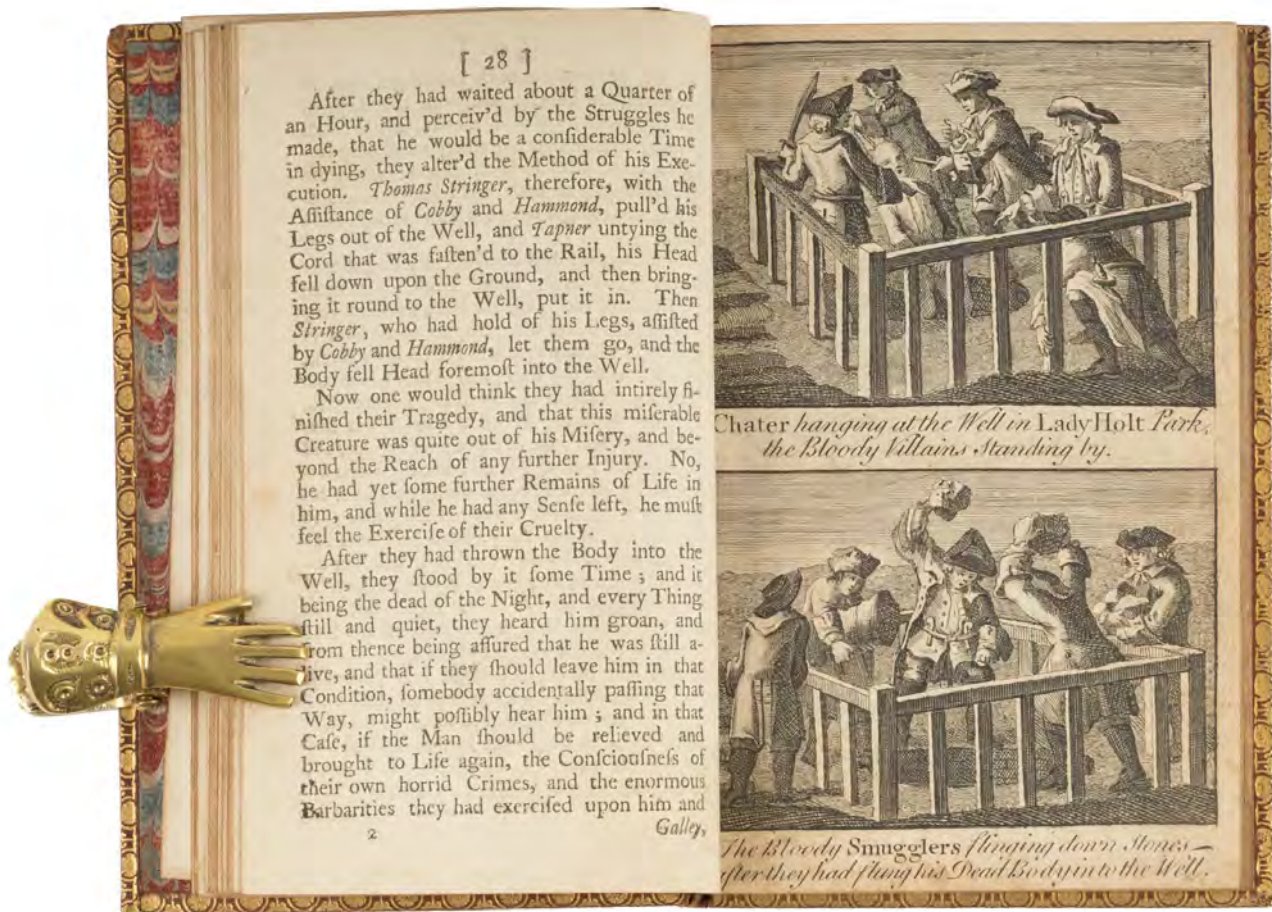 [ 28 ]
After they had waited about a Quarter of
an Hour, and perceiv'd by the Struggles he
made, that he would be a conſiderable Time
in dying, they alter'd the Method of his Exe-
cution. Thomas Stringer, therefore, with the
Aſſiſtance of Cobby and Hammond, pull'd his
Legs out of the Well, and Tapner untying the
Cord that was faſten'd to the Rail, his Head
fell down upon the Ground, and then bring-
ing it round to the Well, put it in. Then
Stringer, who had hold of his Legs, aſſiſted
by Cobby and Hammond, let them go, and the
Body fell Head foremoſt into the Well.
Now one would think they had intirely fi-
niſhed their Tragedy, and that this miſerable
Creature was quite out of his Miſery, and be-
yond the Reach of any further Injury. No,
he had yet ſome further Remains of Life in
him, and while he had any Senſe left, he muſt
feel the Exerciſe of their Cruelty.
After they had thrown the Body into the
Well, they ſtood by it ſome Time ; and it
being the dead of the Night, and every Thing
ſtill and quiet, they heard him groan, and
from thence being aſſured that he was ſtill a-
live, and that if they ſhould leave him in that
Condition, ſomebody accidentally paſſing that
Way, might poſſibly hear him ; and in that
Caſe, if the Man ſhould be relieved and
brought to Life again, the Conſciouſneſs of
their own horrid Crimes, and the enormous
Barbarities they had exerciſed upon him and
2 Galley,
Chater hanging at the Well in Lady Holt Park,
the Bloody Villains Standing by.
The Bloody Smugglers flinging down Stones
after they had flung his Dead Body into the Well.